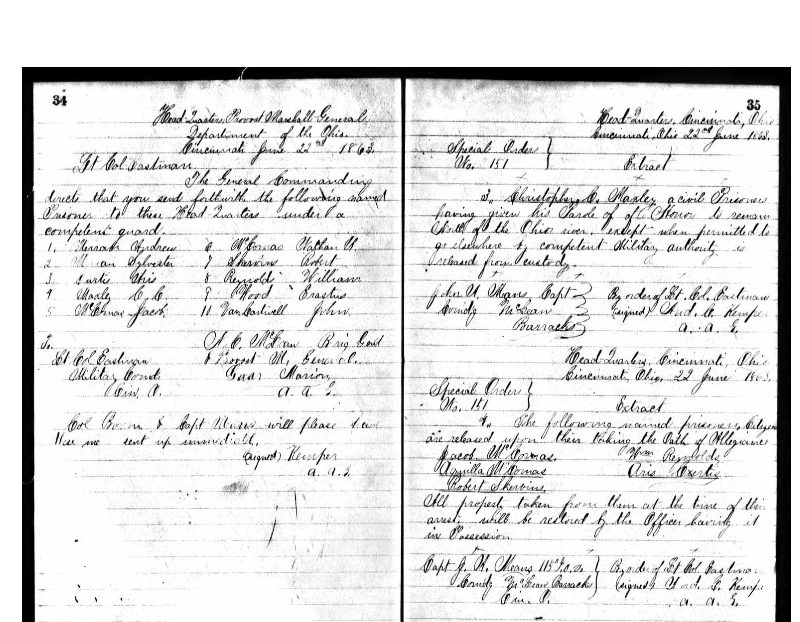 34
Head Quarters, Provost Marshall General,
Department of the Ohio.
Cincinnati June 22nd 1863.
Lt Col Eastman
The General Commanding
directs that you send forthwith the following named
Prisoner to these Head Quarters under a
competent guard.
1, Andrew 6 McComas Nathan
2 Sylvester 7 Skervins Robert
3, Curtis 8 Reynolds William
4 Maxley C. C. 9 Wood Erastus
5 McComas Jacob, 11 Van Cartwell John,
To
Lt Col Eastman
Military Comdt
Cin, O.
N. C. McLean Brig Genl
& Provost M, General.
Guar Marion
a. a. G.
Col & Capt will please have
these men sent up immediat,
(signed) Kemper
a. a. G
35
Head Quarters, Cincinnati, Ohio
Cincinnati, Ohio 22nd June 1863.
Special Orders
No. 151
Extract
3,, Christopher C. Maxley a civil Prisoner
having given his Parole of of Honor to remain
North of the Ohio river, except when permitted to
go elsewhere by competent Military authority is
released from custody.
John H. Means, Capt
Comdg McLean
Barracks
By order of Lt. Col. Eastman
(signed) And. C. Kemper
a. a. G.
Head Quarters, Cincinnati, Ohio
Cincinnati, Ohio, 22 June 1863.
Special Orders
No. 151
Extract
4,, The following named prisoners, Citizens
are released upon their taking the Oath of Allegiance
Jacob McComas, Wm Reynolds
Aquilla McComas
Robert Skervins,
All property taken from them at the time of their
arrest, will be restored by the Officer having it
in Possession
Capt J. H. Means 115th O.
Comdg McLean Barracks
Cin. O.
By order of Lt Col. Eastman
(signed) And. C. Kemper
a. a. G.